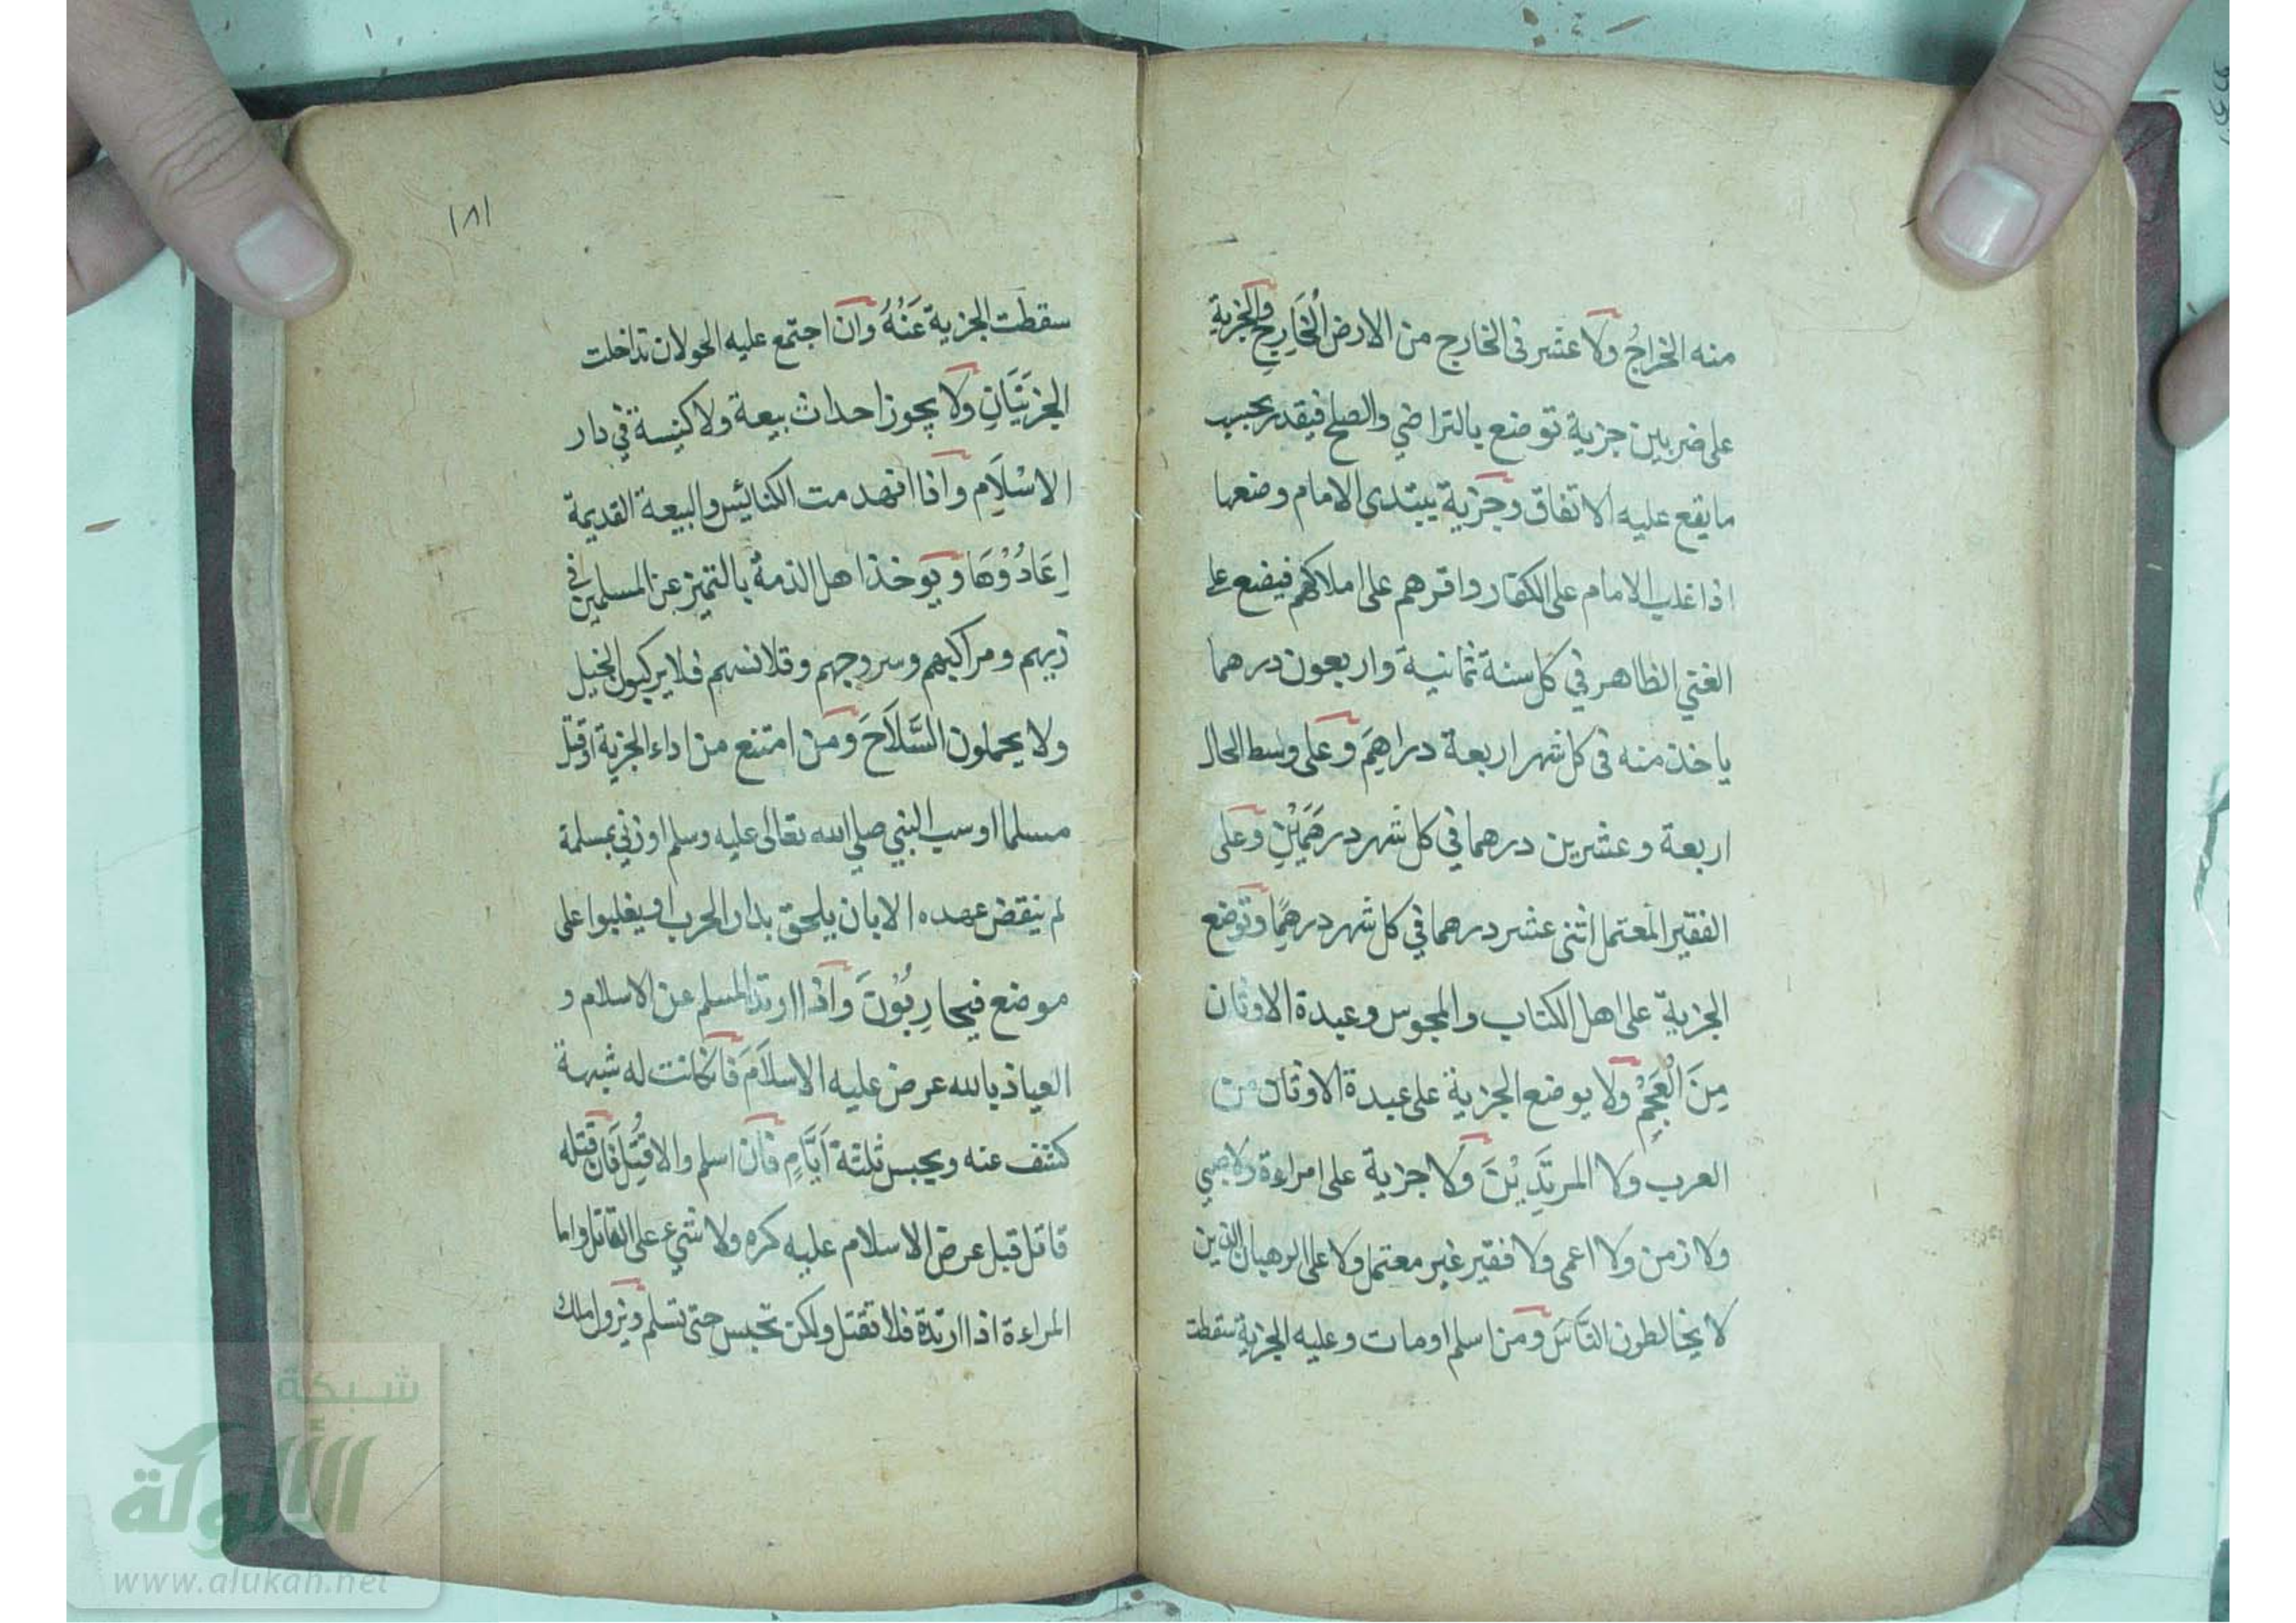 منه الخراجُ ولا عشر فى الخارج من الارض الْخَارِجِ والجزية
على ضربين جزية توضع بالتراضي والصلح فيقدر بحسب
ما يقع عليه الاتفاق وجزية يبتدى الامام وضعها
اذا غلب الامام على الكفار واقرهم على املاكهم فيضع على
الغني الظاهر في كل سنة ثمانية واربعون درهما
ياخذ منه فى كل شهر اربعة دراهِمَ وعلى وسط الحال
اربعة وعشرين درهما في كل شهر درهَمَيْنِ وعلى
الفقير المعتمل اثنى عشر درهما في كل شهر درهمًا وتوضع
الجزية على اهل الكتاب والمجوس وعبدة الاوثان
مِنَ الْعَجَمِ ولا يوضع الجزية على عبدة الاوثان من
العرب ولا المرتَدِيْنَ ولا جزية على امراءة ولا صبي
ولا زمن ولا اعمى ولا فقير غير معتمل ولا على الرهبان الذين
لا يخالطون النَّاسَ ومن اسلم او مات وعليه الجزية سقطت
١٨١
سقطت الجزية عَنْهُ وان اجتمع عليه الحولان تداخلت
الجزيَتَانِ ولا يجوز احداث بيعة ولا كنيسة في دار
الاسْلَامِ واذا انهدمت الكنائيس والبيعة القديمة
اِعَادُوْهَا ويوخذ اهل الذمة بالتميز عن المسلمين في
زيهم ومراكبهم وسروجهم وقلانسهم فلا يركبون الخيل
ولا يحملون السَّلَاحَ ومن امتنع من اداء الجزية او قتل
مسلما او سب النبي صلي الله تعالى عليه وسلم او زني بمسلمة
لم ينقض عهده الا بان يلحق بدار الحرب او يغلبوا على
موضع فيحارِبُوْنَ واذا ارتد المسلم عن الاسلام و
العياذ بالله عرض عليه الاسلَامَ فان كانت له شبهة
كشف عنه ويحبس ثلثة اَيَّامٍ فان اسلم والا قُتِلَ فان قتله
قاتل قبل عرض الاسلام عليه كره ولا شيء على القاتل واما
المراءة اذا ارتدة فلا تقتل ولكن تحبس حتى تسلم ويزول املاك
شبكة
الألوكة
www.alukah.net